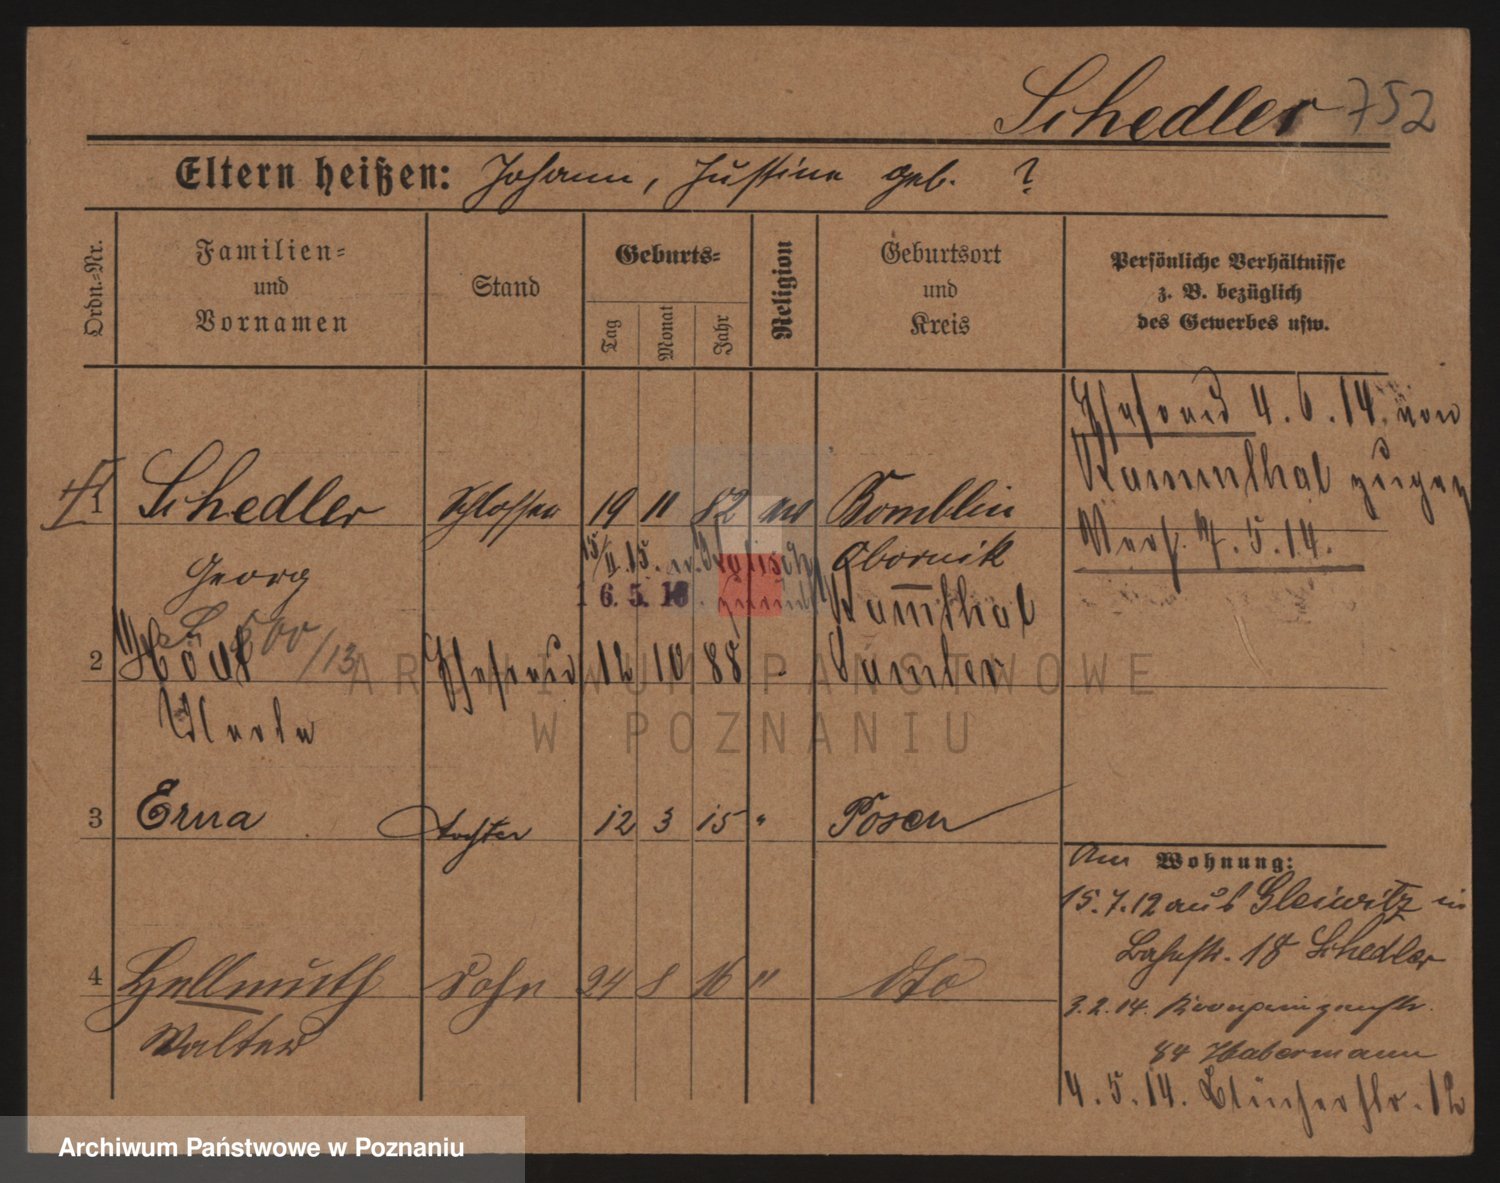 Schedler 752
Eltern heißen: Johann, Justine geb. ?
Ordn.=Nr.
Familien=
und
Vornamen
Stand
Geburts=
Tag
Monat
Jahr
Religion
Geburtsort
und
Kreis
Persönliche Verhältnisse
z. B. bezüglich
des Gewerbes usw.
Ehefrau 4.6.14. von
Kammthal zugez
Verh. 7.5.14.
1 Schedler Schlosser 19 11 82 ev Bomblin
Georg
15/II.15. zurück Obornik
16.5.16
500/13
Kammthal
2 Ehefrau 12 10 88 Samter
3 Erna Tochter 12 3 15 " Posen
4 Hellmuth Sohn 24 8 16 " dto
Walter
Am Wohnung:
15.7.12 aus Gleiwitz in
Bahnstr. 18 Schedler
3.2.14. Kronprinzenstr.
84 Habermann
4.5.14. Blücherstr. 12
ARCHIWUM PAŃSTWOWE
W POZNANIU
Archiwum Państwowe w Poznaniu